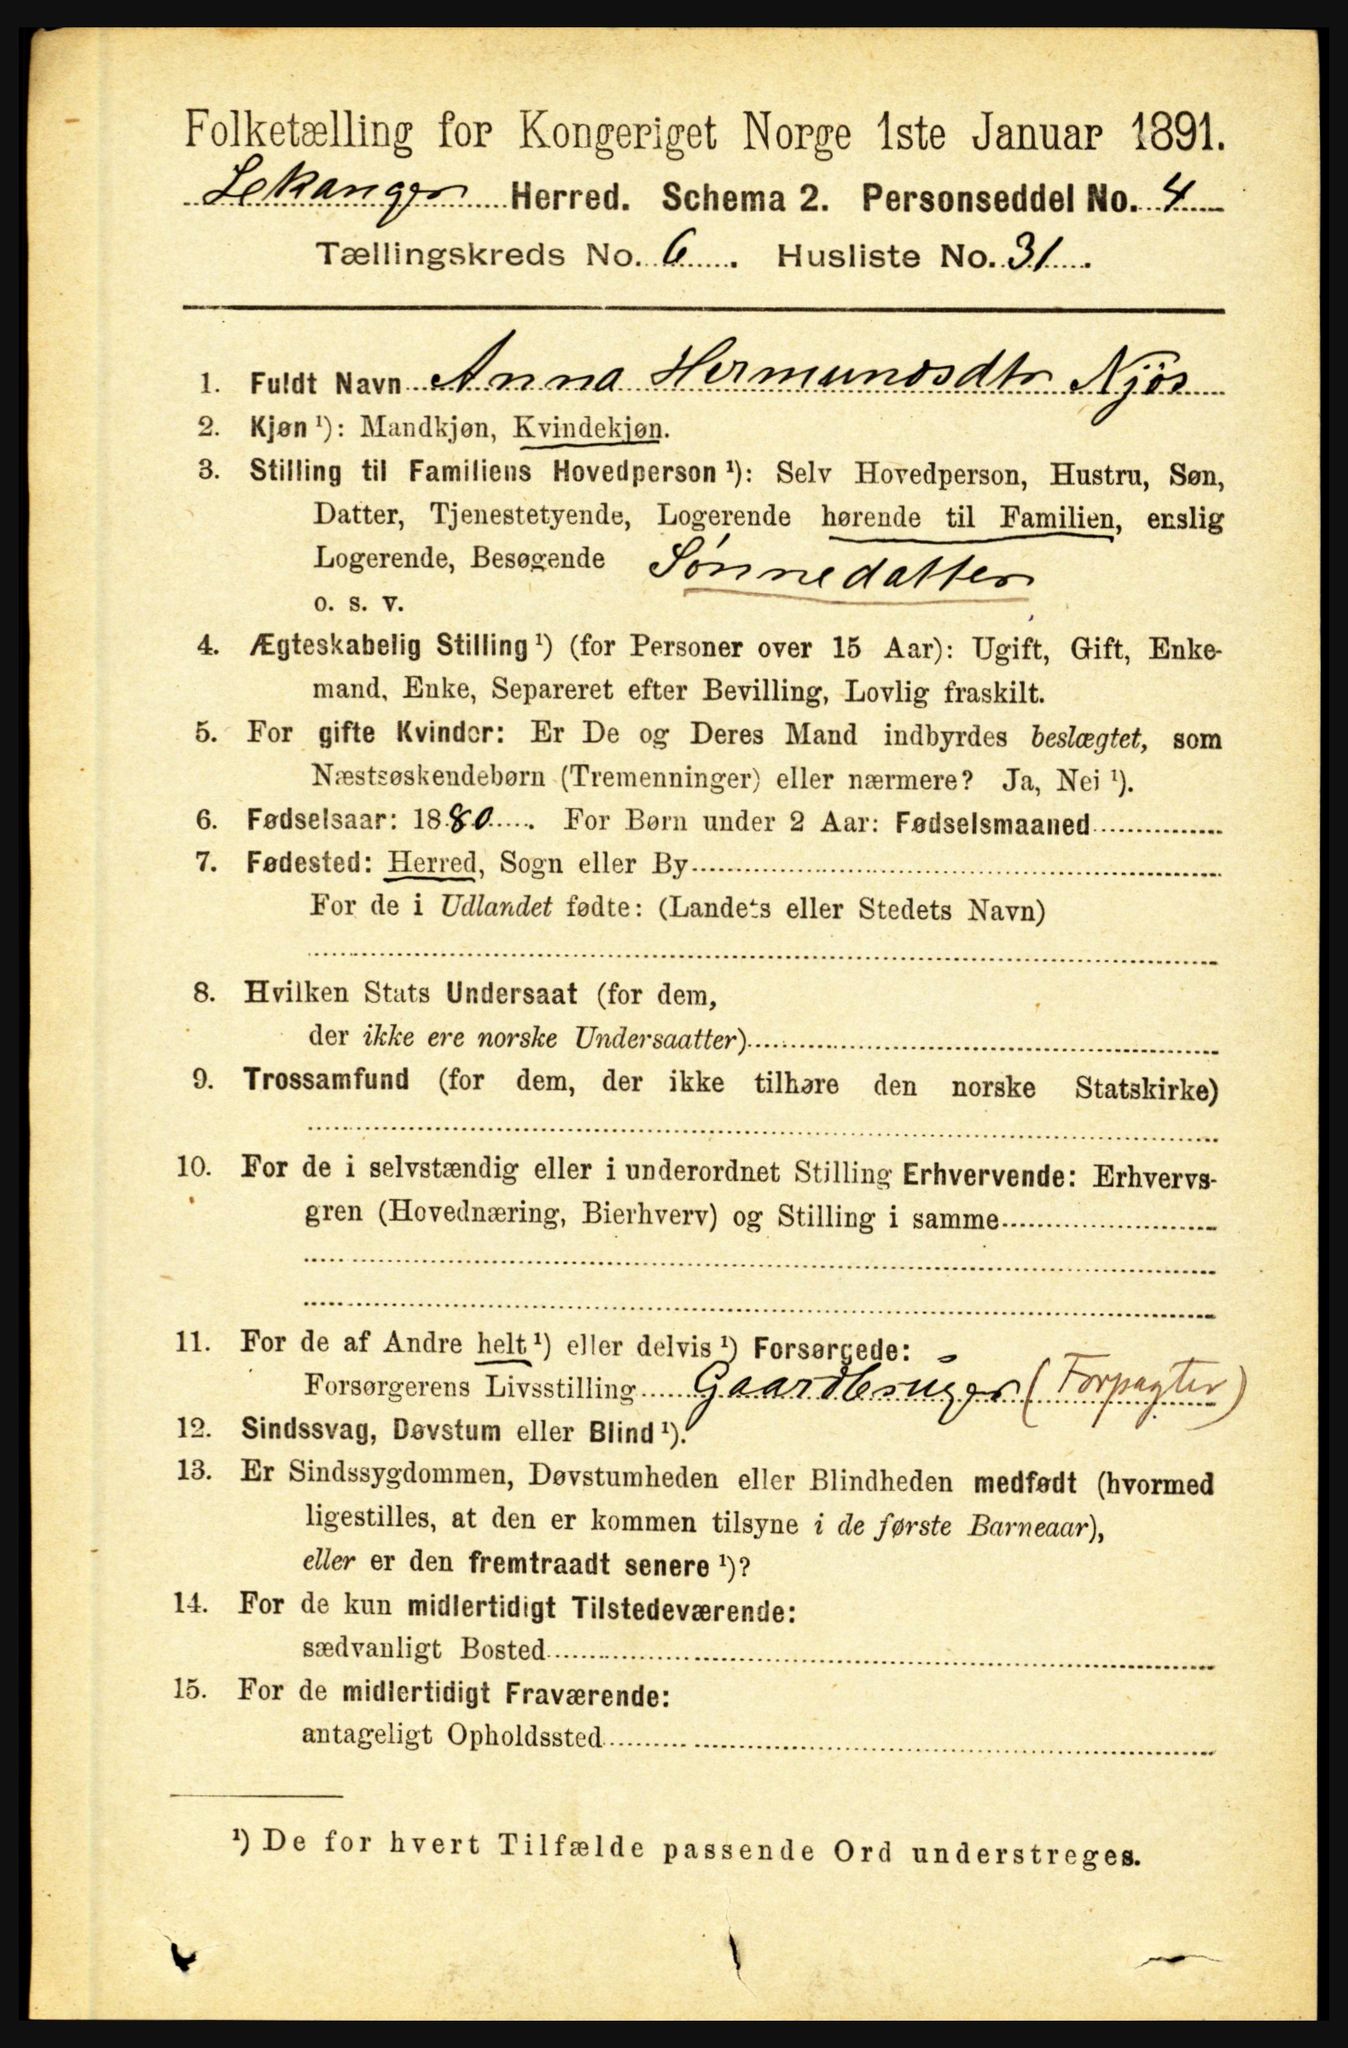 Folketælling for Kongeriget Norge 1ste Januar 1891.
Lekanger Herred. Schema 2. Personseddel No. 4
Tællingskreds No. 6. Husliste No. 31.
1. Fuldt Navn Anna Hermundsdtr Njøs
2. Kjøn ¹): Mandkjøn, Kvindekjøn.
3. Stilling til Familiens Hovedperson ¹): Selv Hovedperson, Hustru, Søn,
Datter, Tjenestetyende, Logerende hørende til Familien, enslig
Logerende, Besøgende Sønnedatter
o. s. v.
4. Ægteskabelig Stilling ¹) (for Personer over 15 Aar): Ugift, Gift, Enke-
mand, Enke, Separeret efter Bevilling, Lovlig fraskilt.
5. For gifte Kvinder: Er De og Deres Mand indbyrdes beslægtet, som
Næstsøskendebørn (Tremenninger) eller nærmere? Ja, Nei ¹).
6. Fødselsaar: 1880. For Børn under 2 Aar: Fødselsmaaned
7. Fødested: Herred, Sogn eller By
For de i Udlandet fødte: (Landets eller Stedets Navn)
8. Hvilken Stats Undersaat (for dem,
der ikke ere norske Undersaatter)
9. Trossamfund (for dem, der ikke tilhøre den norske Statskirke)
10. For de i selvstændig eller i underordnet Stilling Erhvervende: Erhvervs-
gren (Hovednæring, Bierhverv) og Stilling i samme
11. For de af Andre helt ¹) eller delvis ¹) Forsørgede:
Forsørgerens Livsstilling Gaardbruger (Forpagter)
12. Sindssvag, Døvstum eller Blind ¹).
13. Er Sindssygdommen, Døvstumheden eller Blindheden medfødt (hvormed
ligestilles, at den er kommen tilsyne i de første Barneaar),
eller er den fremtraadt senere ¹)?
14. For de kun midlertidigt Tilstedeværende:
sædvanligt Bosted
15. For de midlertidigt Fraværende:
antageligt Opholdssted
¹) De for hvert Tilfælde passende Ord understreges.